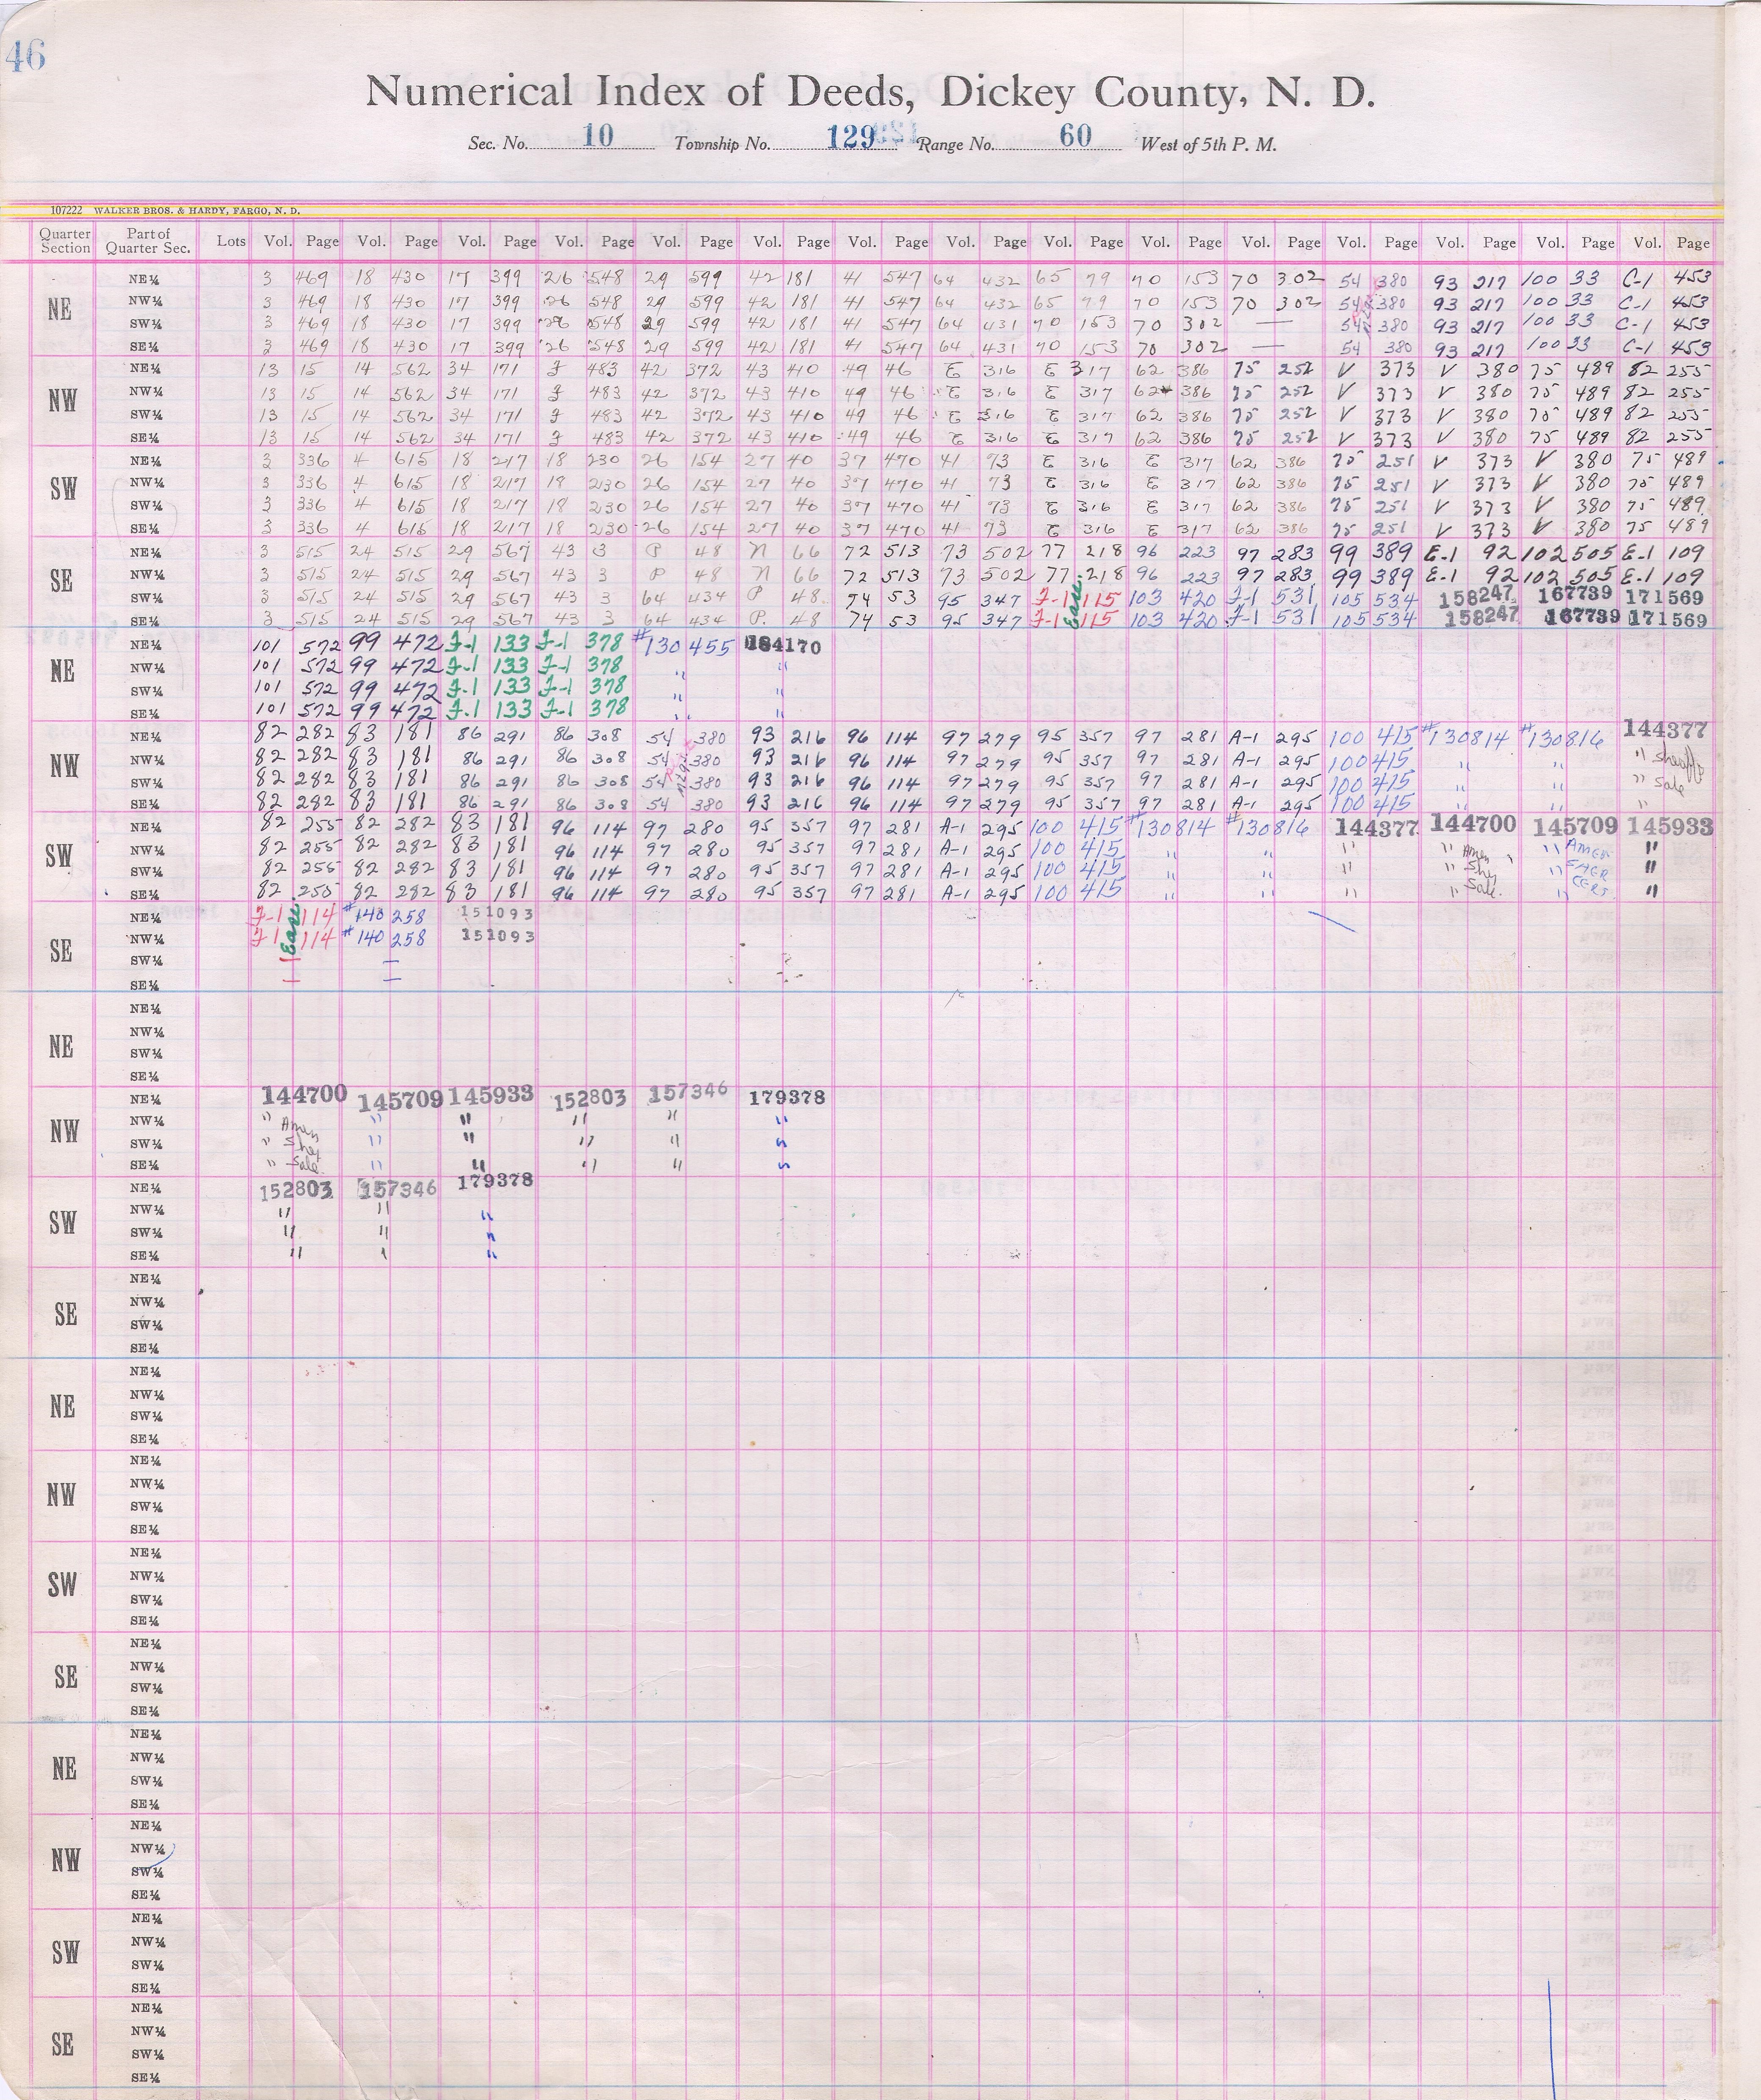 46
Numerical Index of Deeds, Dickey County, N. D.
Sec. No. 10 Township No. 129 Range No. 60 West of 5th P. M.
107222 WALKER BROS. & HARDY, FARGO, N. D.
Quarter Section Part of Quarter Sec. Lots Vol. Page Vol. Page Vol. Page Vol. Page Vol. Page Vol. Page Vol. Page Vol. Page Vol. Page Vol. Page Vol. Page Vol. Page Vol. Page Vol. Page Vol. Page
NE
NE¼ 3 469 18 430 17 399 26 548 29 599 42 181 41 547 64 432 65 79 70 153 70 302 54 380 93 217 100 33 C-1 453
NW¼ 3 469 18 430 17 399 26 548 29 599 42 181 41 547 64 432 65 79 70 153 70 302 54 380 93 217 100 33 C-1 453
SW¼ 3 469 18 430 17 399 26 548 29 599 42 181 41 547 64 431 70 153 70 302 — 54 380 93 217 100 33 C-1 453
SE¼ 3 469 18 430 17 399 26 548 29 599 42 181 41 547 64 431 70 153 70 302 — 54 380 93 217 100 33 C-1 453
NW
NE¼ 13 15 14 562 34 171 J 483 42 372 43 410 49 46 E 316 E 317 62 386 75 252 V 373 V 380 75 489 82 255
NW¼ 13 15 14 562 34 171 J 483 42 372 43 410 49 46 E 316 E 317 62 386 75 252 V 373 V 380 75 489 82 255
SW¼ 13 15 14 562 34 171 J 483 42 372 43 410 49 46 E 316 E 317 62 386 75 252 V 373 V 380 75 489 82 255
SE¼ 13 15 14 562 34 171 J 483 42 372 43 410 49 46 E 316 E 317 62 386 75 252 V 373 V 380 75 489 82 255
SW
NE¼ 3 336 4 615 18 217 18 230 26 154 27 40 37 470 41 73 E 316 E 317 62 386 75 251 V 373 V 380 75 489
NW¼ 3 336 4 615 18 217 18 230 26 154 27 40 37 470 41 73 E 316 E 317 62 386 75 251 V 373 V 380 75 489
SW¼ 3 336 4 615 18 217 18 230 26 154 27 40 37 470 41 73 E 316 E 317 62 386 75 251 V 373 V 380 75 489
SE¼ 3 336 4 615 18 217 18 230 26 154 27 40 37 470 41 73 E 316 E 317 62 386 75 251 V 373 V 380 75 489
SE
NE¼ 3 515 24 515 29 567 43 3 P 48 N 66 72 513 73 502 77 218 96 223 97 283 99 389 E-1 92 102 505 E-1 109
NW¼ 3 515 24 515 29 567 43 3 P 48 N 66 72 513 73 502 77 218 96 223 97 283 99 389 E-1 92 102 505 E-1 109
SW¼ 3 515 24 515 29 567 43 3 64 434 P 48 74 53 95 347 J-1 Ease. 115 103 420 J-1 531 105 534 158247 167739 171569
SE¼ 3 515 24 515 29 567 43 3 64 434 P. 48 74 53 95 347 J-1 115 103 420 J-1 531 105 534 158247 167739 171569
NE
NE¼ 101 572 99 472 J-1 133 J-1 378 #130 455 184170
NW¼ 101 572 99 472 J-1 133 J-1 378 " "
SW¼ 101 572 99 472 J-1 133 J-1 378 " "
SE¼ 101 572 99 472 J-1 133 J-1 378 " "
NW
NE¼ 82 282 83 181 86 291 86 308 54 380 93 216 96 114 97 279 95 357 97 281 A-1 295 100 415 #130814 #130816 144377
NW¼ 82 282 83 181 86 291 86 308 54 380 93 216 96 114 97 279 95 357 97 281 A-1 295 100 415 " " " Sheriff
SW¼ 82 282 83 181 86 291 86 308 54 380 93 216 96 114 97 279 95 357 97 281 A-1 295 100 415 " " " Sale
SE¼ 82 282 83 181 86 291 86 308 54 380 93 216 96 114 97 279 95 357 97 281 A-1 295 100 415 " " "
SW
NE¼ 82 255 82 282 83 181 96 114 97 280 95 357 97 281 A-1 295 100 415 #130814 #130816 144377 144700 145709 145933
NW¼ 82 255 82 282 83 181 96 114 97 280 95 357 97 281 A-1 295 100 415 " " " " Amen " AMEN "
SW¼ 82 255 82 282 83 181 96 114 97 280 95 357 97 281 A-1 295 100 415 " " " " Shf " SHER "
SE¼ 82 255 82 282 83 181 96 114 97 280 95 357 97 281 A-1 295 100 415 " " " " Sale. " CERT "
SE
NE¼ J-1 Ease. 114 #140 258 151093
NW¼ J-1 114 #140 258 151093
SW¼ — —
SE¼ — —
NE
NE¼
NW¼
SW¼
SE¼
NW
NE¼ 144700 145709 145933 152803 157346 179378
NW¼ " Amen " " " " "
SW¼ " Shf " " " " "
SE¼ " Sale. " " " " "
SW
NE¼ 152803 157346 179378
NW¼ " " "
SW¼ " " "
SE¼ " " "
SE
NE¼
NW¼
SW¼
SE¼
NE
NE¼
NW¼
SW¼
SE¼
NW
NE¼
NW¼
SW¼
SE¼
SW
NE¼
NW¼
SW¼
SE¼
SE
NE¼
NW¼
SW¼
SE¼
NE
NE¼
NW¼
SW¼
SE¼
NW
NE¼
NW¼
SW¼
SE¼
SW
NE¼
NW¼
SW¼
SE¼
SE
NE¼
NW¼
SW¼
SE¼